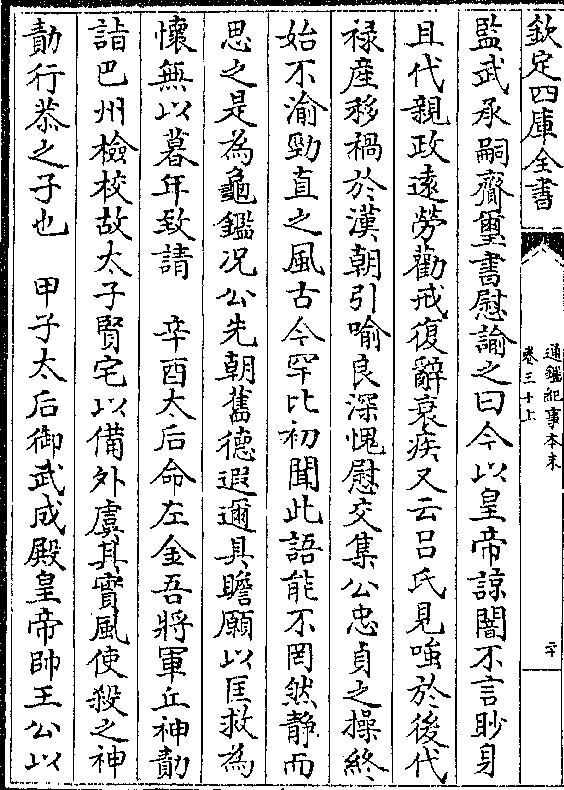 欽定四庫全書
通鑑紀事本末
卷三十上
二十
監武承嗣齎璽書慰諭之曰今以皇帝諒闇不言眇身
且代親政遠勞勸戒復辭衰疾又云吕氏見嗤於後代
禄産移禍於漢朝引喻良深愧慰交集公忠貞之操終
始不渝勁直之風古今罕比初聞此語能不罔然静而
思之是為龜鑑况公先朝舊德遐邇具瞻願以匡救為
懷無以暮年致請　辛酉太后命左金吾將軍丘神勣
詣巴州檢校故太子賢宅以備外虞其實風使殺之神
勣行恭之子也　甲子太后御武成殿皇帝帥王公以